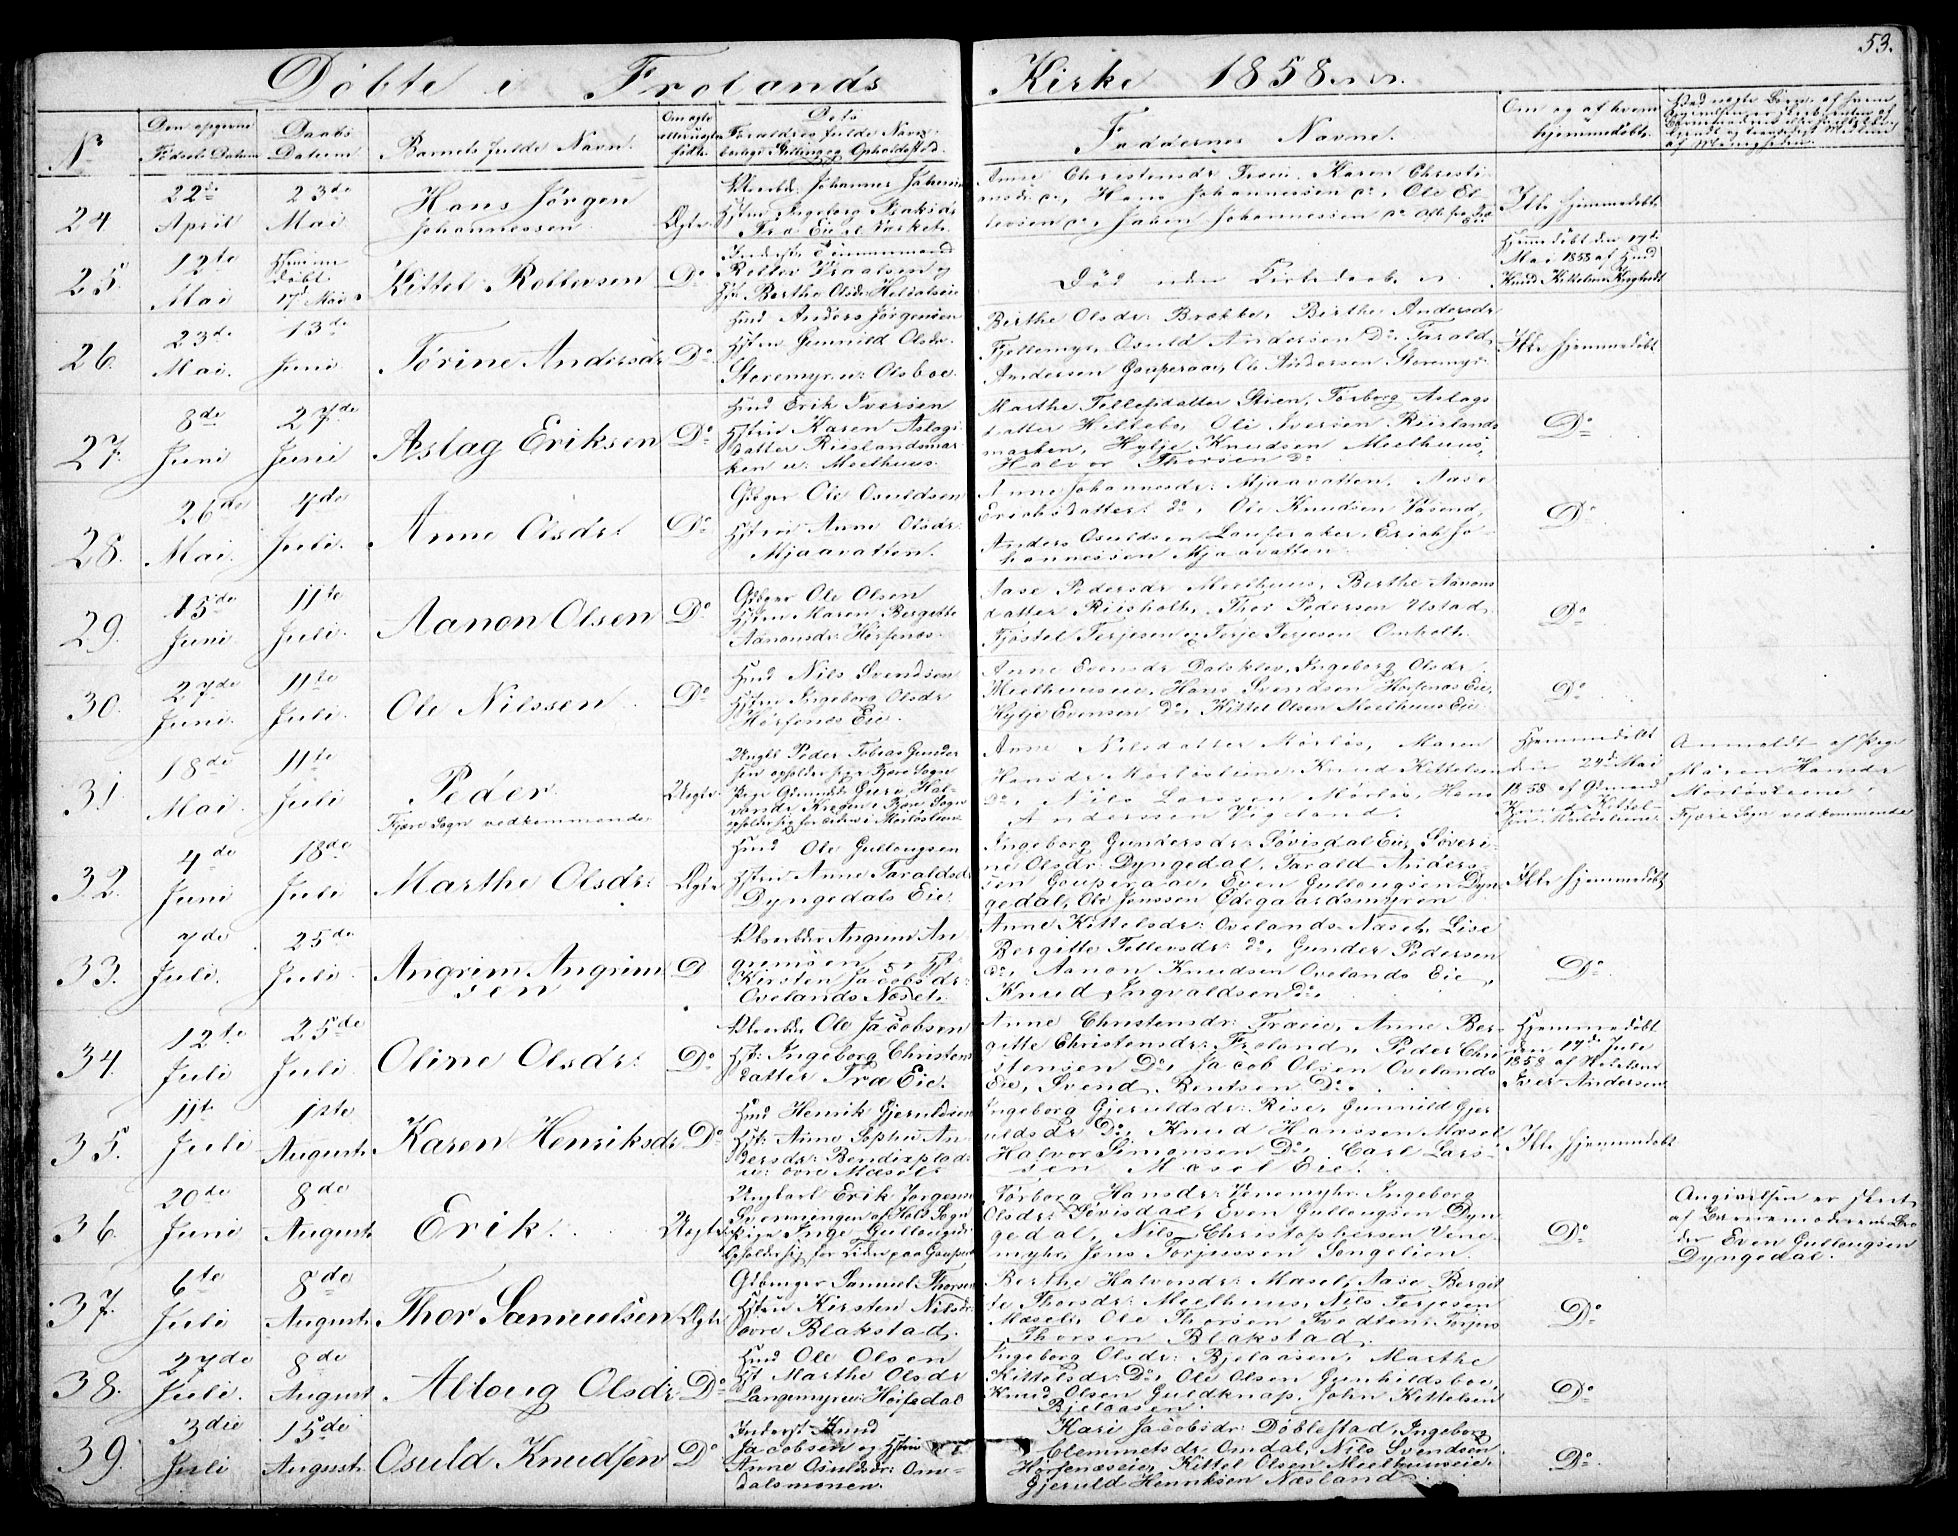 53.
Døbte i Frolands Kirke 1858.
No
Den opgivne Fødsels Datum
Daabs Datum
Barnets fulde Navn.
Om ægte eller uægte født.
Dets Forældres fulde Navn, borgl. Stilling og Opholdssted.
Faddernes Navne.
Om og af hvem hjemmedøbt.
24
22de April
23de Mai
Hans Jørgen Johannessen
Ægte
Johannes
Hstru Ingeborg
Træ Eie
Anne Christensdr Træeie, Karen Christi-
Hans Johannessen do, Ole El-
levsen do, Johannessen do
Ikke hjemmedøbt
25
12te Mai
Hjemmedøbt 17de Mai
Kittel Rollevsen
Do
Rollev
Berthe Olsdr
Død uden Kirkedaab
Hjemmedøbt den 17de
Mai 1858 af Hmd
Knud Kittelsen
26.
23de Mai.
13de Juni
Tørine Andersdr
Do
Hmd Anders Jørgensen
Hstru Gunnild Olsdr
Storemyr u: Olsboe
Birthe Olsdr: Brække, Birthe Andersdr
Fjellemyr, Osuld Andersen Do Tarald
Andersen Gouperaae, Ole Andersen Storemyr
Ikke hjemmedøbt
27.
8de Juni
27de Juni
Aslag Eriksen
Do
Hmd Erik Iversen
Hstru Karen Aslags-
datter Riislandsmar-
ken u: Meelhuus.
Marthe Tellefsdatter Stien, Tørborg Aslags
datter Hiltebo, Ole Iversen Riislands
marken, Hylje Knudsen Meelhuus,
Halvor Thorsen do
Do
28.
26de Mai.
4de Juli.
Anne Olsdr:
Do
Gbrger Ole Osuldsen
Hstru Anne Olsdr:
Mjaavatten.
Anne Johannesdr: Mjaavatten, Aase
Erichsdatter: do, Ole Knudsen Vasend,
Anders Osuldsen Lauveraker, Erich Jo-
hannessen Mjaavatten
Do
29.
15de Juni.
11te Juli.
Aanon Olsen
Do
Gbrger Ole Olsen
Hstru Maren Bergitte
Aanonsdr: Hørfenæs
Aase Pedersdr Meelhuus, Berthe Aanons
datter Riisholt, Thor Pedersen Ustad,
Tjøstel Terjesen & Terje Terjesen Omholt.
Do
30.
27de Juni.
11te Juli.
Ole Nilssen
Do
Hmd Nils Svendsen
Hstru Ingeborg Olsdr
Hørfenæs Eie
Anne Evensdr Dalsklev, Ingeborg Olsdr
Meelhuuseie, Hans Svendsen Hørfenæs Eie,
Hylje Evensen do, Kittel Olsen Meelhuus Eie
Do
31.
18de Mai
11te Juli
Peder
Fjære Sogn vedkommende
Uægte
Ungkl Peder Tobias Gunder-
sen opholder sig i Fjære Sogn
Pige Guro Hal-
vorsdr
opholder sig for tiden i Mørløsteene
Anne Nilsdatter Mørløs, Maren
Hansdr Mørløsteene, Knud Kittelsen
do, Nils Larsen Mørløs, Hans
Anderssen Vigeland
Hjemmedøbt
den 24de Mai
1858 af Gbmand
Knud Kittel-
sen Mørløsteene
Anmeldt af Pige
Maren Hansdr
Mørløsteene
Fjære Sogn vedkommende
32.
4de Juni
18de Juli
Marthe Olsdr:
Ægte
Hmd Ole Gullougsen
Hstru Anne Taraldsdr
Dyngedals Eie.
Ingeborg Gundersdr: Søvisdal Eie, Søveri-
ne Olsdr: Dyngedal, Tarald Anders-
sen Gouperaae, Even Gullougsen Dyn-
gedal, Ole Jenssen Ødegaardsmyren
Ikke hjemmedøbt
33.
7de Juli.
25de Juli.
Angrim Angrimsen
Do
Angrim An-
grimsen og Hst:
Kirsten Jacobsdr:
Ovelands Næset.
Anne Kittelsdr: Ovelands-Næset, Lise
Bergitte Tellevsdr: do, Gunder Pedersen
do, Aanon Knudsen Ovelands Eie,
Knud Ingvaldsen Do.
Do
34.
12te Juli
25de Juli.
Oline Olsdr:
Do
Ole Jacobsen
Hst: Ingeborg Christens
datter Træ Eie.
Anne Christensdr: Træeie, Anne Ber-
gitte Christensdr: Froland, Peder Chri-
stensen Do, Jacob Olsen Ovelands
Eie, Svend Bentsen Do.
Hjemmedøbt
den 14de Juli
1858 af
Iver Andersen
35.
11te Juli
1ste August.
Karen Henriksdr
Do
Hmd Henrik Gjeruldsen
Hst: Anne Sophie An-
dersdr: Bendixplads
u: øvre Mæsel
Ingeborg Gjeruldsdr: Rise, Gunnild Gjer
uldsdr Do, Knud Hanssen Mæsel
Halvor Simonsen Do, Carl Lars-
sen Mæsel Eie.
Ikke hjemmedøbt
36.
20de Juni
8de August.
Erik.
Uægte
Ungkarl Erik Jørgensen
Pige Inge Gullougsdr
opholder sig for tiden paa
Tørborg Hansdr: Venemyhr, Ingeborg
Olsdr: Søvisdal, Even Gullougsen Dyn-
gedal, Nils Christophersen Vene-
myhr, Jens Torjussen Songelien.
Do
Angivelsen er skeet
af Barnemoderens Bro
der Even Gullougsen
Dyngedal.
37.
6te Juli
8de August.
Thor Samuelsen
Ægte
Gbruger Samuel Thorsen
Hstru Kirsten Nilsdr
øvre Blakstad.
Berthe Halvorsdr: Mæsel, Aase Bergit
te Thorsdr: Meelhuus, Nils Terjesen
Mæsel, Ole Thorsen Tvedten, Torjus
Thorsen Blakstad.
Do
38.
27de Juli.
8de August
Aaloug Olsdr
Do
Hmd Ole Olsen
Hst Marthe Olsdr
Langemyr u: Høisedal
Ingeborg Olsdr: Bjelaasen, Marthe
Kittelsdr: Do, Ole Olsen Gunhildsboe,
Knud Olsen Guldknap, John Kittelsen
Bjelaasen.
Do
39.
3die Juli
15de August.
Osuld Knudsen
Do
Inderst Knud
Jacobsen og Hstru
Anne Osuldsdr: Om-
dalsmonen.
Kari Jacobsdr: Døblestad, Ingeborg
Clemmetsdr Omdal, Nils Svendsen
Hørfenæseie, Kittel Olsen Meelhuuseie,
Gjeruld Henriksen Næsland
Do